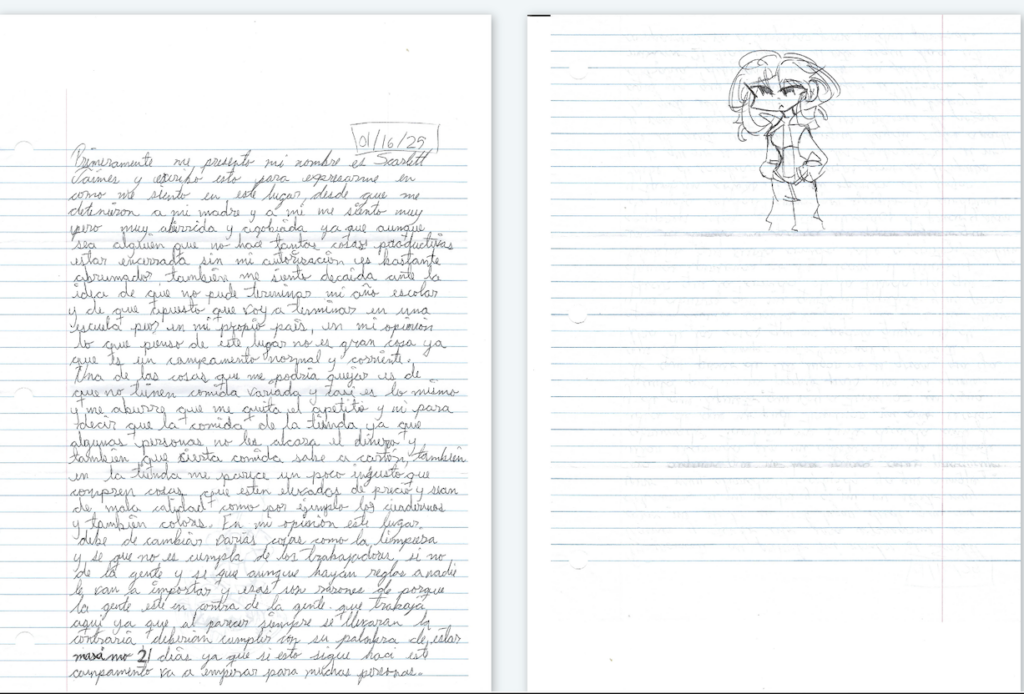 01/16/25
Primeramente me presento mi nombre es Scarlett
Jaimes y escribo esto para expresarme en
como me siento en este lugar, desde que me
detenieron a mi madre y a mi me siento muy
pero muy aburrida y agobiada ya que aunque
sea alguien que no hace tantas cosas productivas
estar encerrada sin mi autorisación es bastante
abrumador, también me siento decaida ante la
idea de que no pude terminar mi año escolar
y de que apuesto que voy a terminar en una
escuela peor en mi propio pais, en mi opinion
lo que pienso de este lugar no es gran cosa ya
que es un campamento normal y corriente.
Una de las cosas que me podria quejar es de
que no tienen comida variada y casi es lo mismo
y me aburre que me quita el apetito y ni para
decir que la comida de la tienda ya que
algunas personas no les alcasa el dinero y
también que cierta comida sabe a cartón, también
en la tienda me parece un poco injusto que
compren cosas que esten elevadas de precio y sean
de mala calidad como por ejemplo los cuadernos
y tambien colores. En mi opinion este lugar
debe de cambiar varias cosas como la limpiesa
y se que no es cumpla de los trabajadores, si no
de la gente y se que aunque hayan reglas a nadie
le van a importar y esas son rasones de porque
la gente este en contra de la gente que trabaja
aqui ya que al parecer siempre se llevaran la
contraria, deberian cumplir con su palabra de estar
maximo 21 dias ya que si esto sigue haci este
campamento va a empeorar para muchas personas.